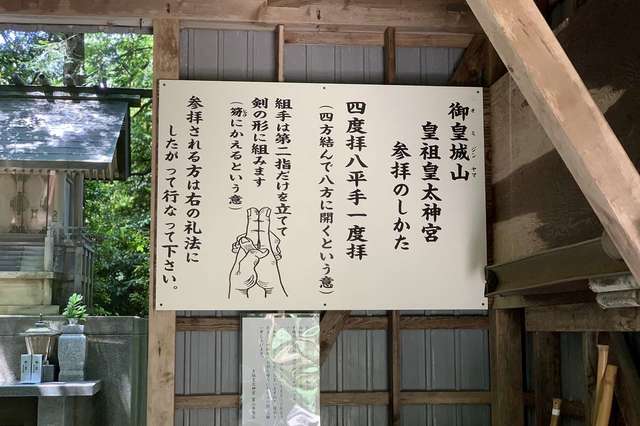 御皇城山
オミジンヤマ
皇祖皇太神宮
参拝のしかた
四度拝八平手一度拝
(四方結んで八方に開くという意)
組手は第二指だけを立てて
剣の形に組みます
(剱にかえるという意)
参拝される方は右の礼法に
したがって行なって下さい。